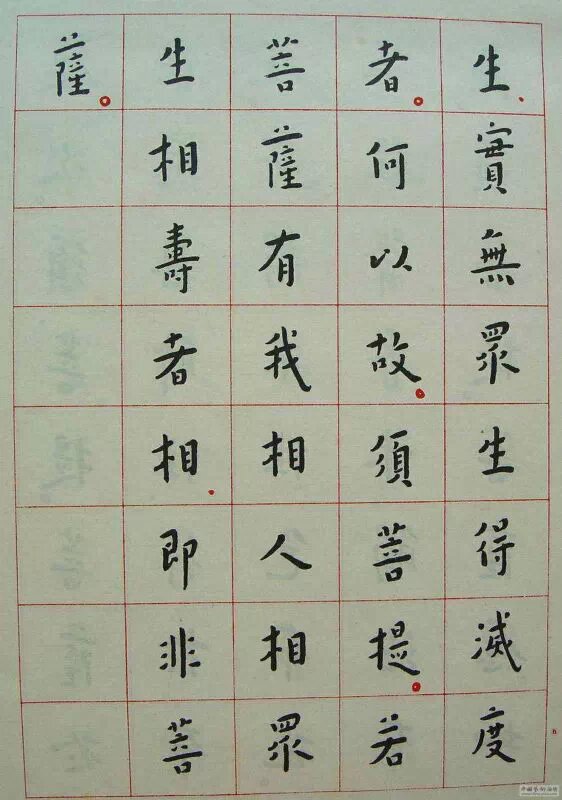 生實無眾生得滅度
者何以故須菩提若
菩薩有我相人相眾
生相壽者相即非菩
薩